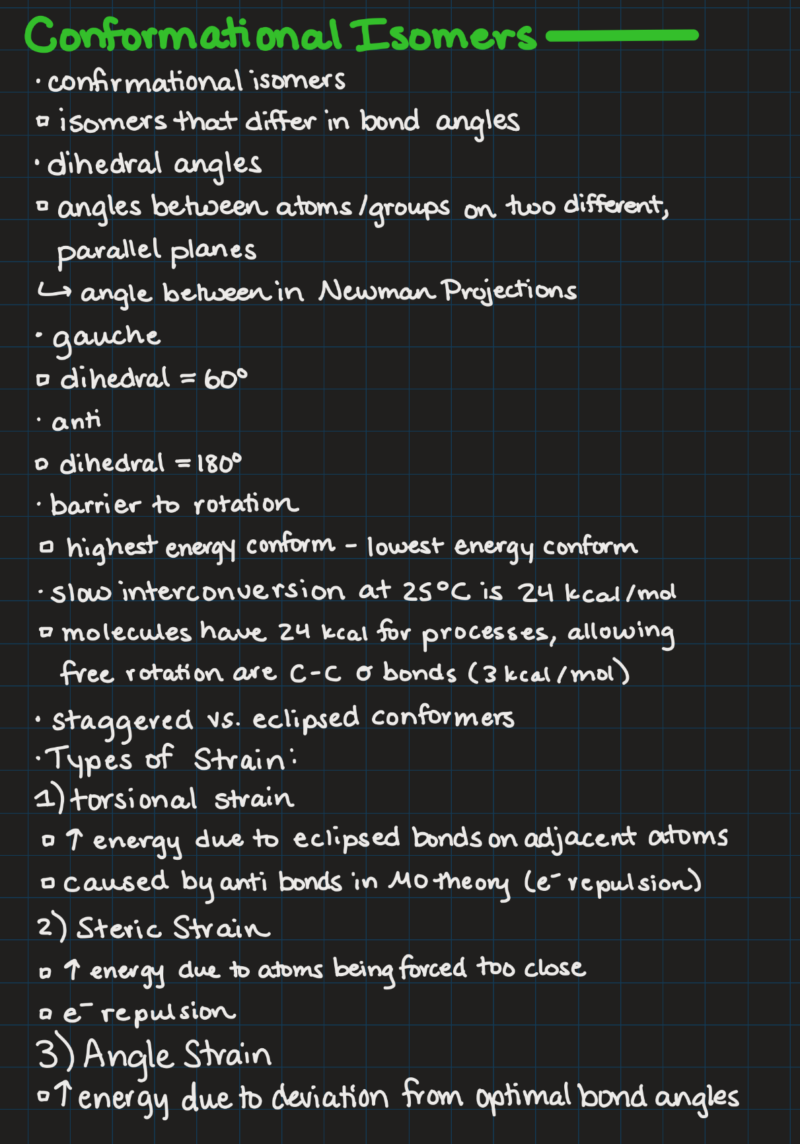 Conformational Isomers
· confirmational isomers
▫ isomers that differ in bond angles
· dihedral angles
▫ angles between atoms/groups on two different,
parallel planes
↳ angle between in Newman Projections
· gauche
▫ dihedral = 60°
· anti
▫ dihedral = 180°
· barrier to rotation
▫ highest energy conform - lowest energy conform
· slow interconversion at 25°C is 24 kcal/mol
▫ molecules have 24 kcal for processes, allowing
free rotation are C-C σ bonds (3 kcal/mol)
· staggered vs. eclipsed conformers
· Types of Strain:
1) torsional strain
▫ ↑ energy due to eclipsed bonds on adjacent atoms
▫ caused by anti bonds in MO theory (e⁻ repulsion)
2) Steric Strain
▫ ↑ energy due to atoms being forced too close
▫ e⁻ repulsion
3) Angle Strain
▫ ↑ energy due to deviation from optimal bond angles